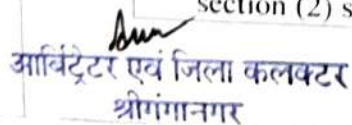 section (2) s
आर्बिट्रेटर एवं जिला कलक्टर
श्रीगंगानगर